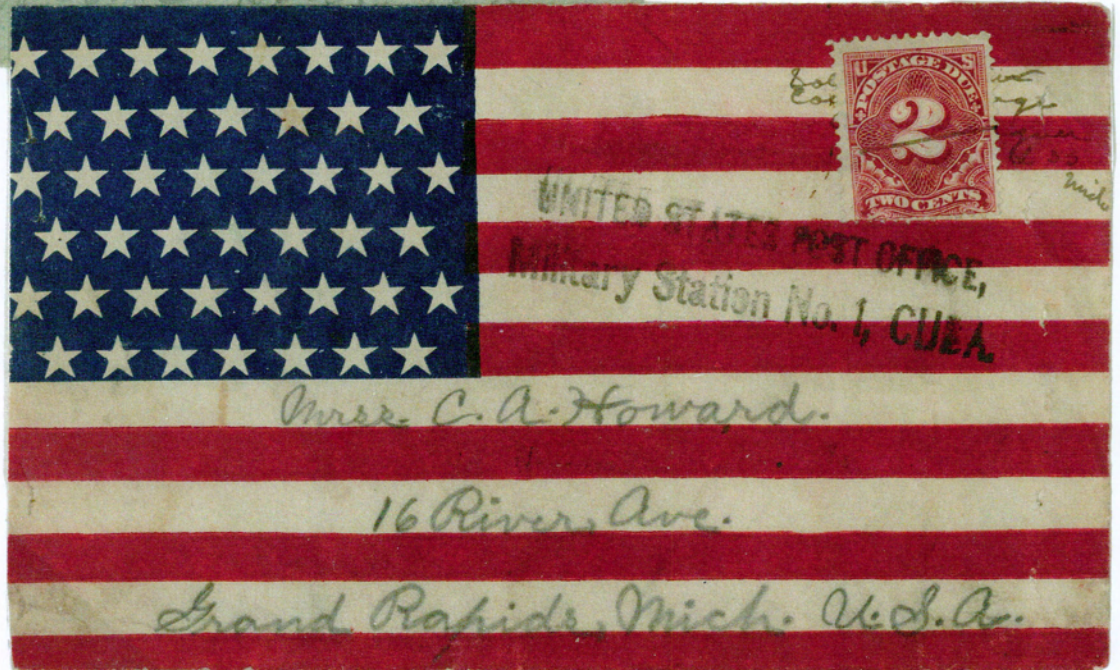 U S
POSTAGE DUE
2
TWO CENTS
UNITED STATES POST OFFICE,
Military Station No. 1, CUBA.
Mrss. C. A. Howard.
16 River, Ave.
Grand Rapids, Mich. U. S. A.